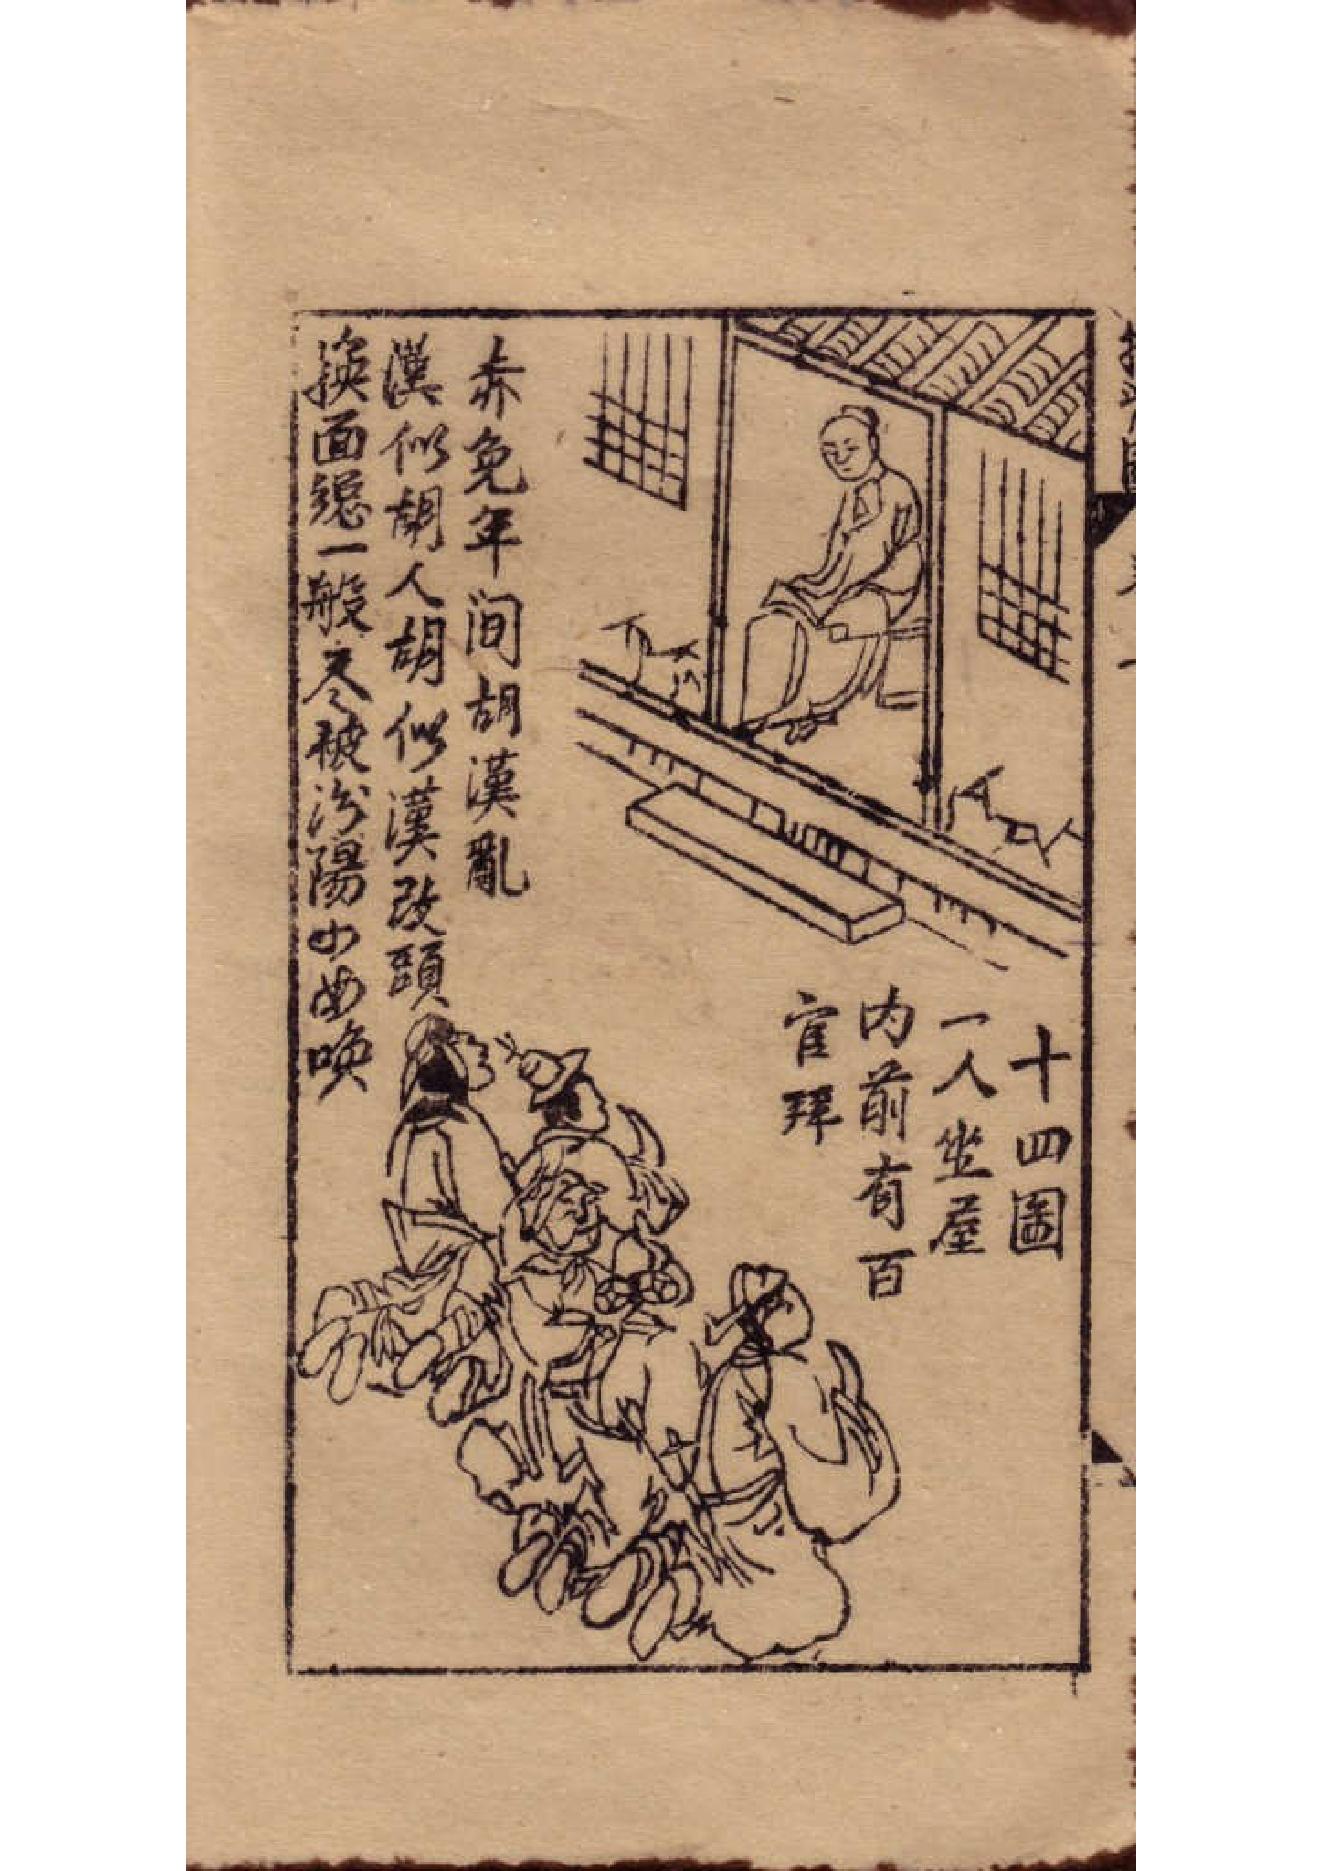 十四圖
一人坐屋
内前有百
官拜
赤兔年间胡漢亂
漢似胡人胡似漢改頭
換面總一般尽被汾陽小曲喚